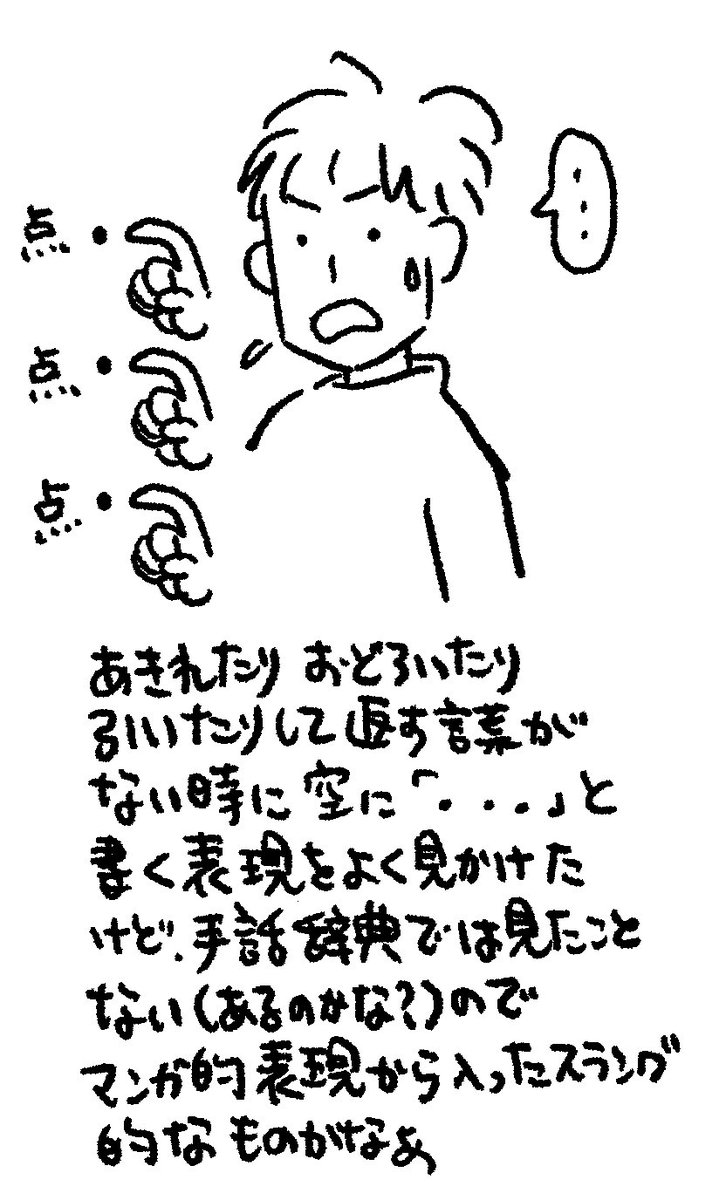 点
点
点
・・・
あきれたり おどろいたり
引いたりして返す言葉が
ない時に空に「・・・」と
書く表現をよく見かけた
けど、手話辞典では見たこと
ない(あるのかな?)ので
マンガ的表現から入ったスラング
的なものかなぁ